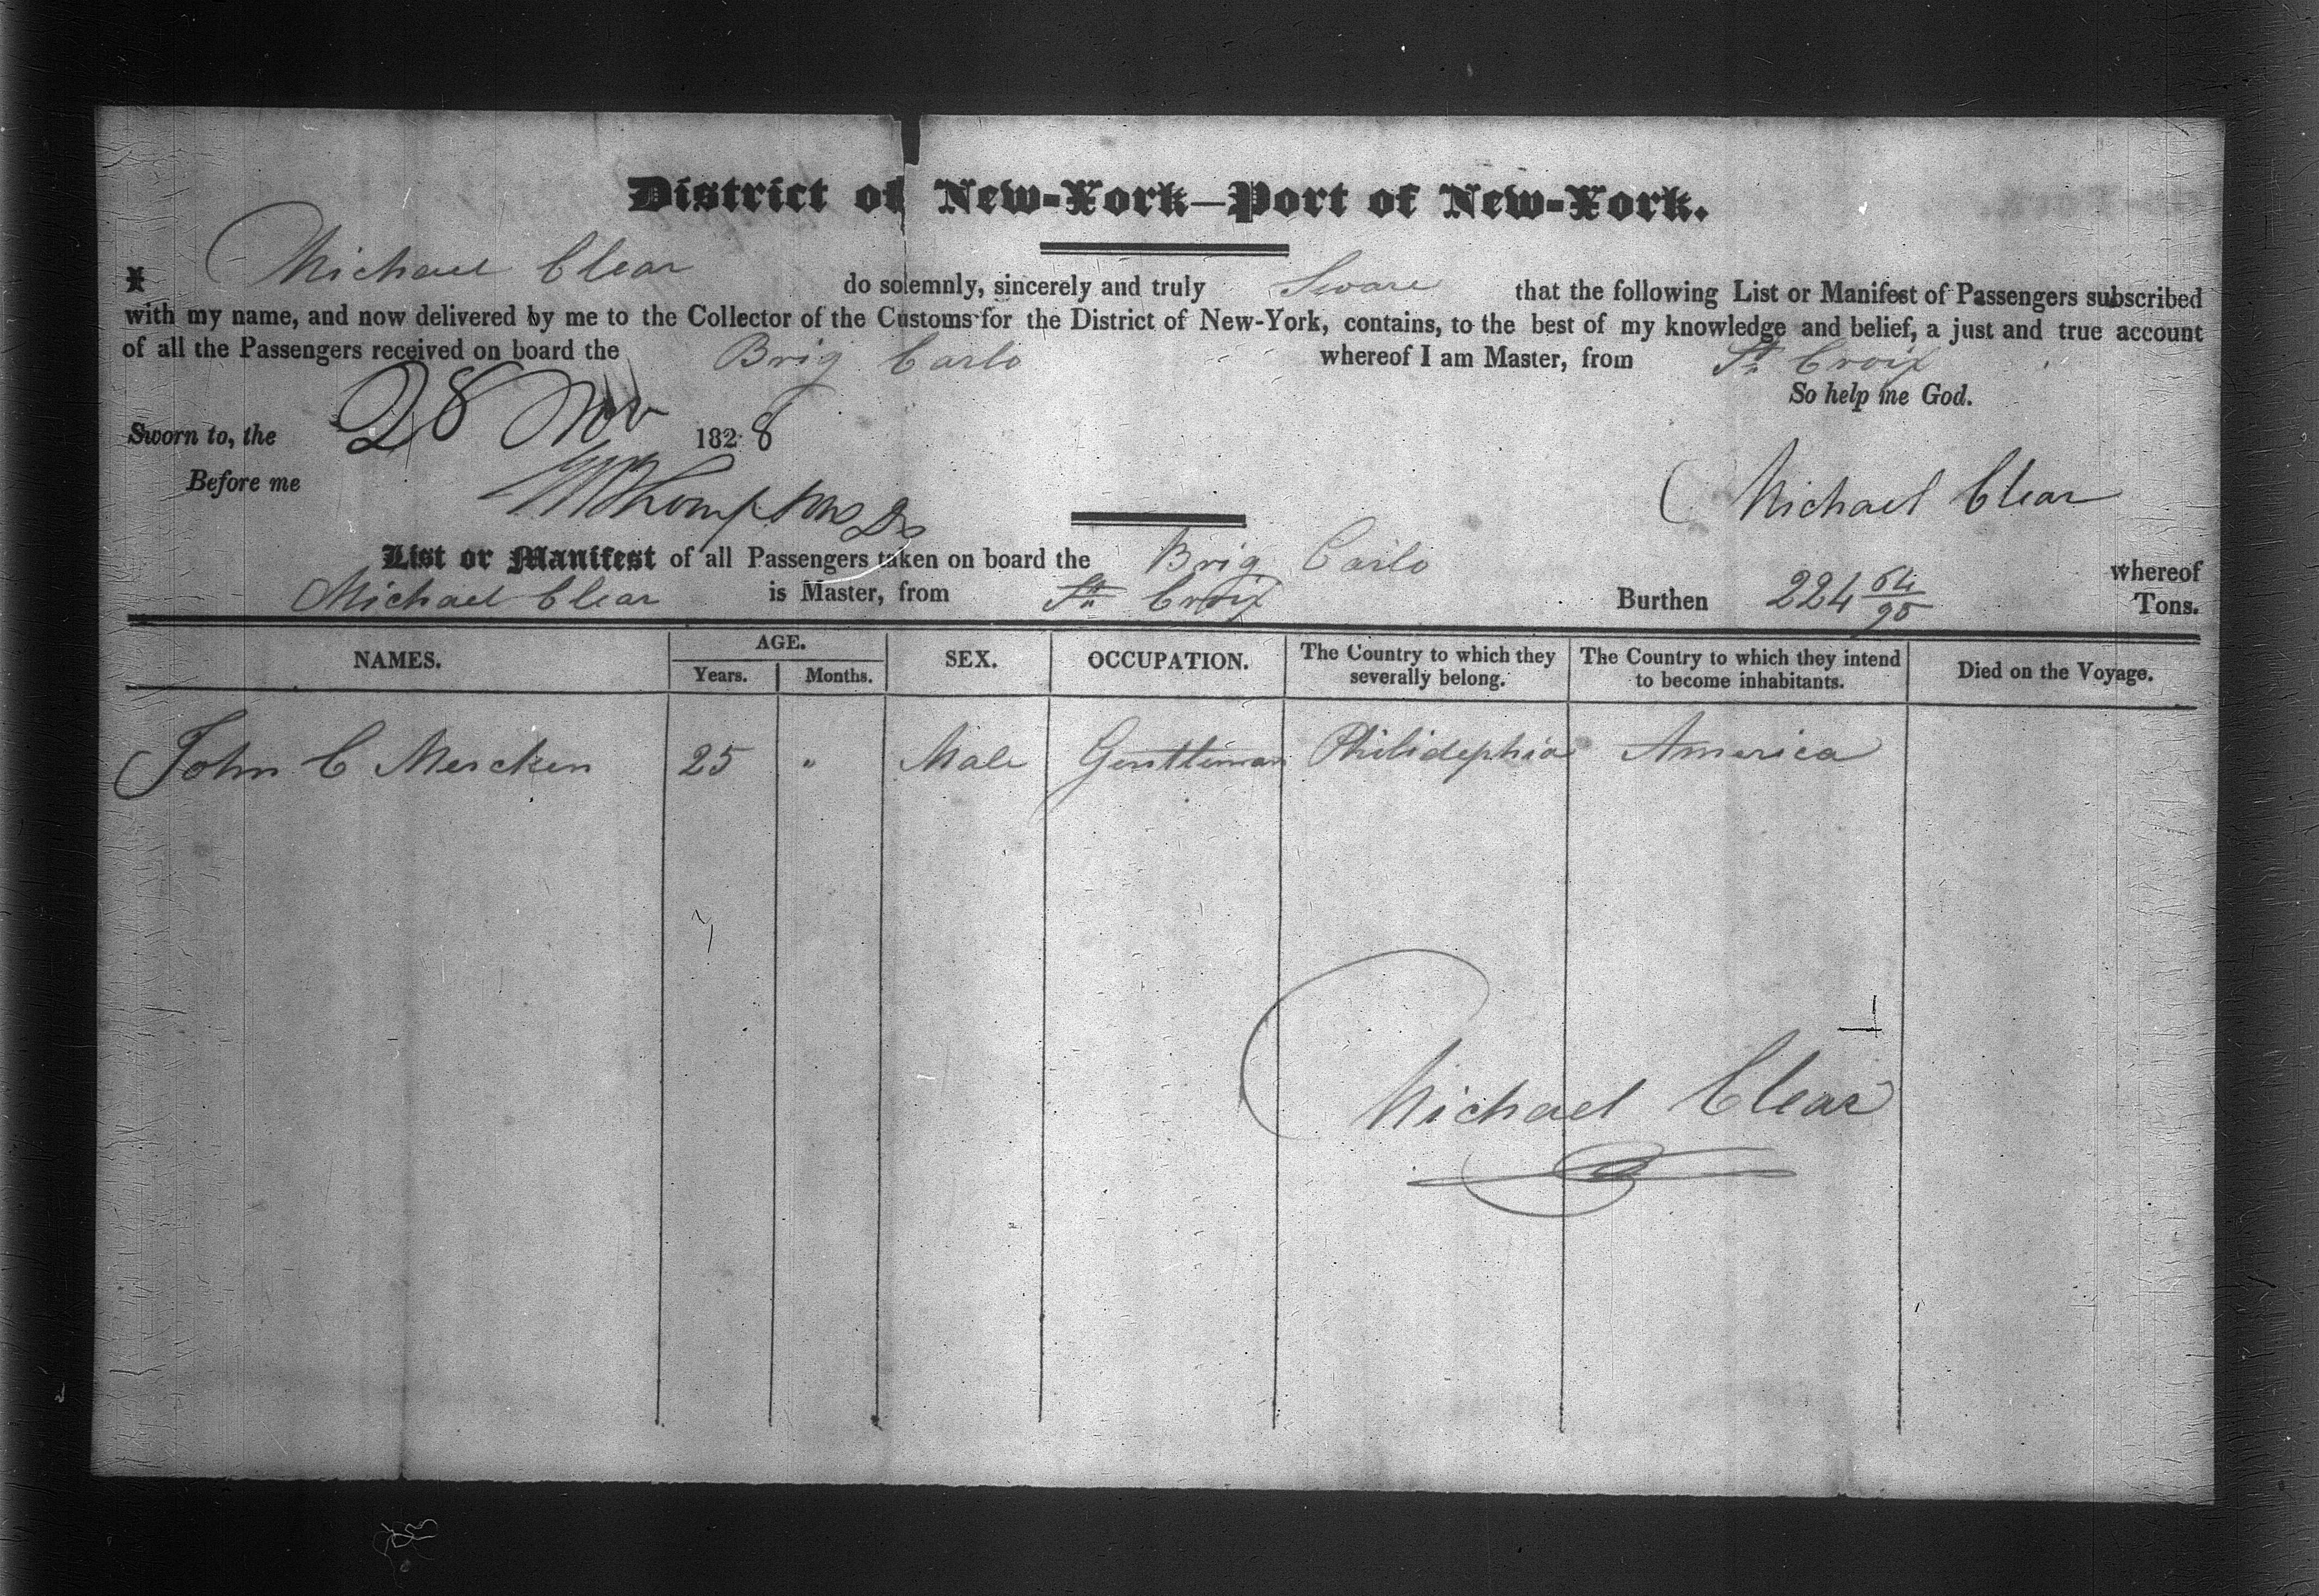 District of New-York—Port of New-York.
I Michael Clear do solemnly, sincerely and truly Sware that the following List or Manifest of Passengers subscribed
with my name, and now delivered by me to the Collector of the Customs for the District of New-York, contains, to the best of my knowledge and belief, a just and true account
of all the Passengers received on board the Brig Carlo whereof I am Master, from St. Croix
So help me God.
Sworn to, the 28 Nov 1828
Before me Thompson Michael Clear
List or Manifest of all Passengers taken on board the Brig Carlo whereof
Michael Clear is Master, from St. Croix Burthen 224 64/95 Tons.
NAMES. AGE. Years. Months. SEX. OCCUPATION. The Country to which they severally belong. The Country to which they intend to become inhabitants. Died on the Voyage.
John C Mercken 25 " Male Gentleman Philidephia America
1
Michael Clear